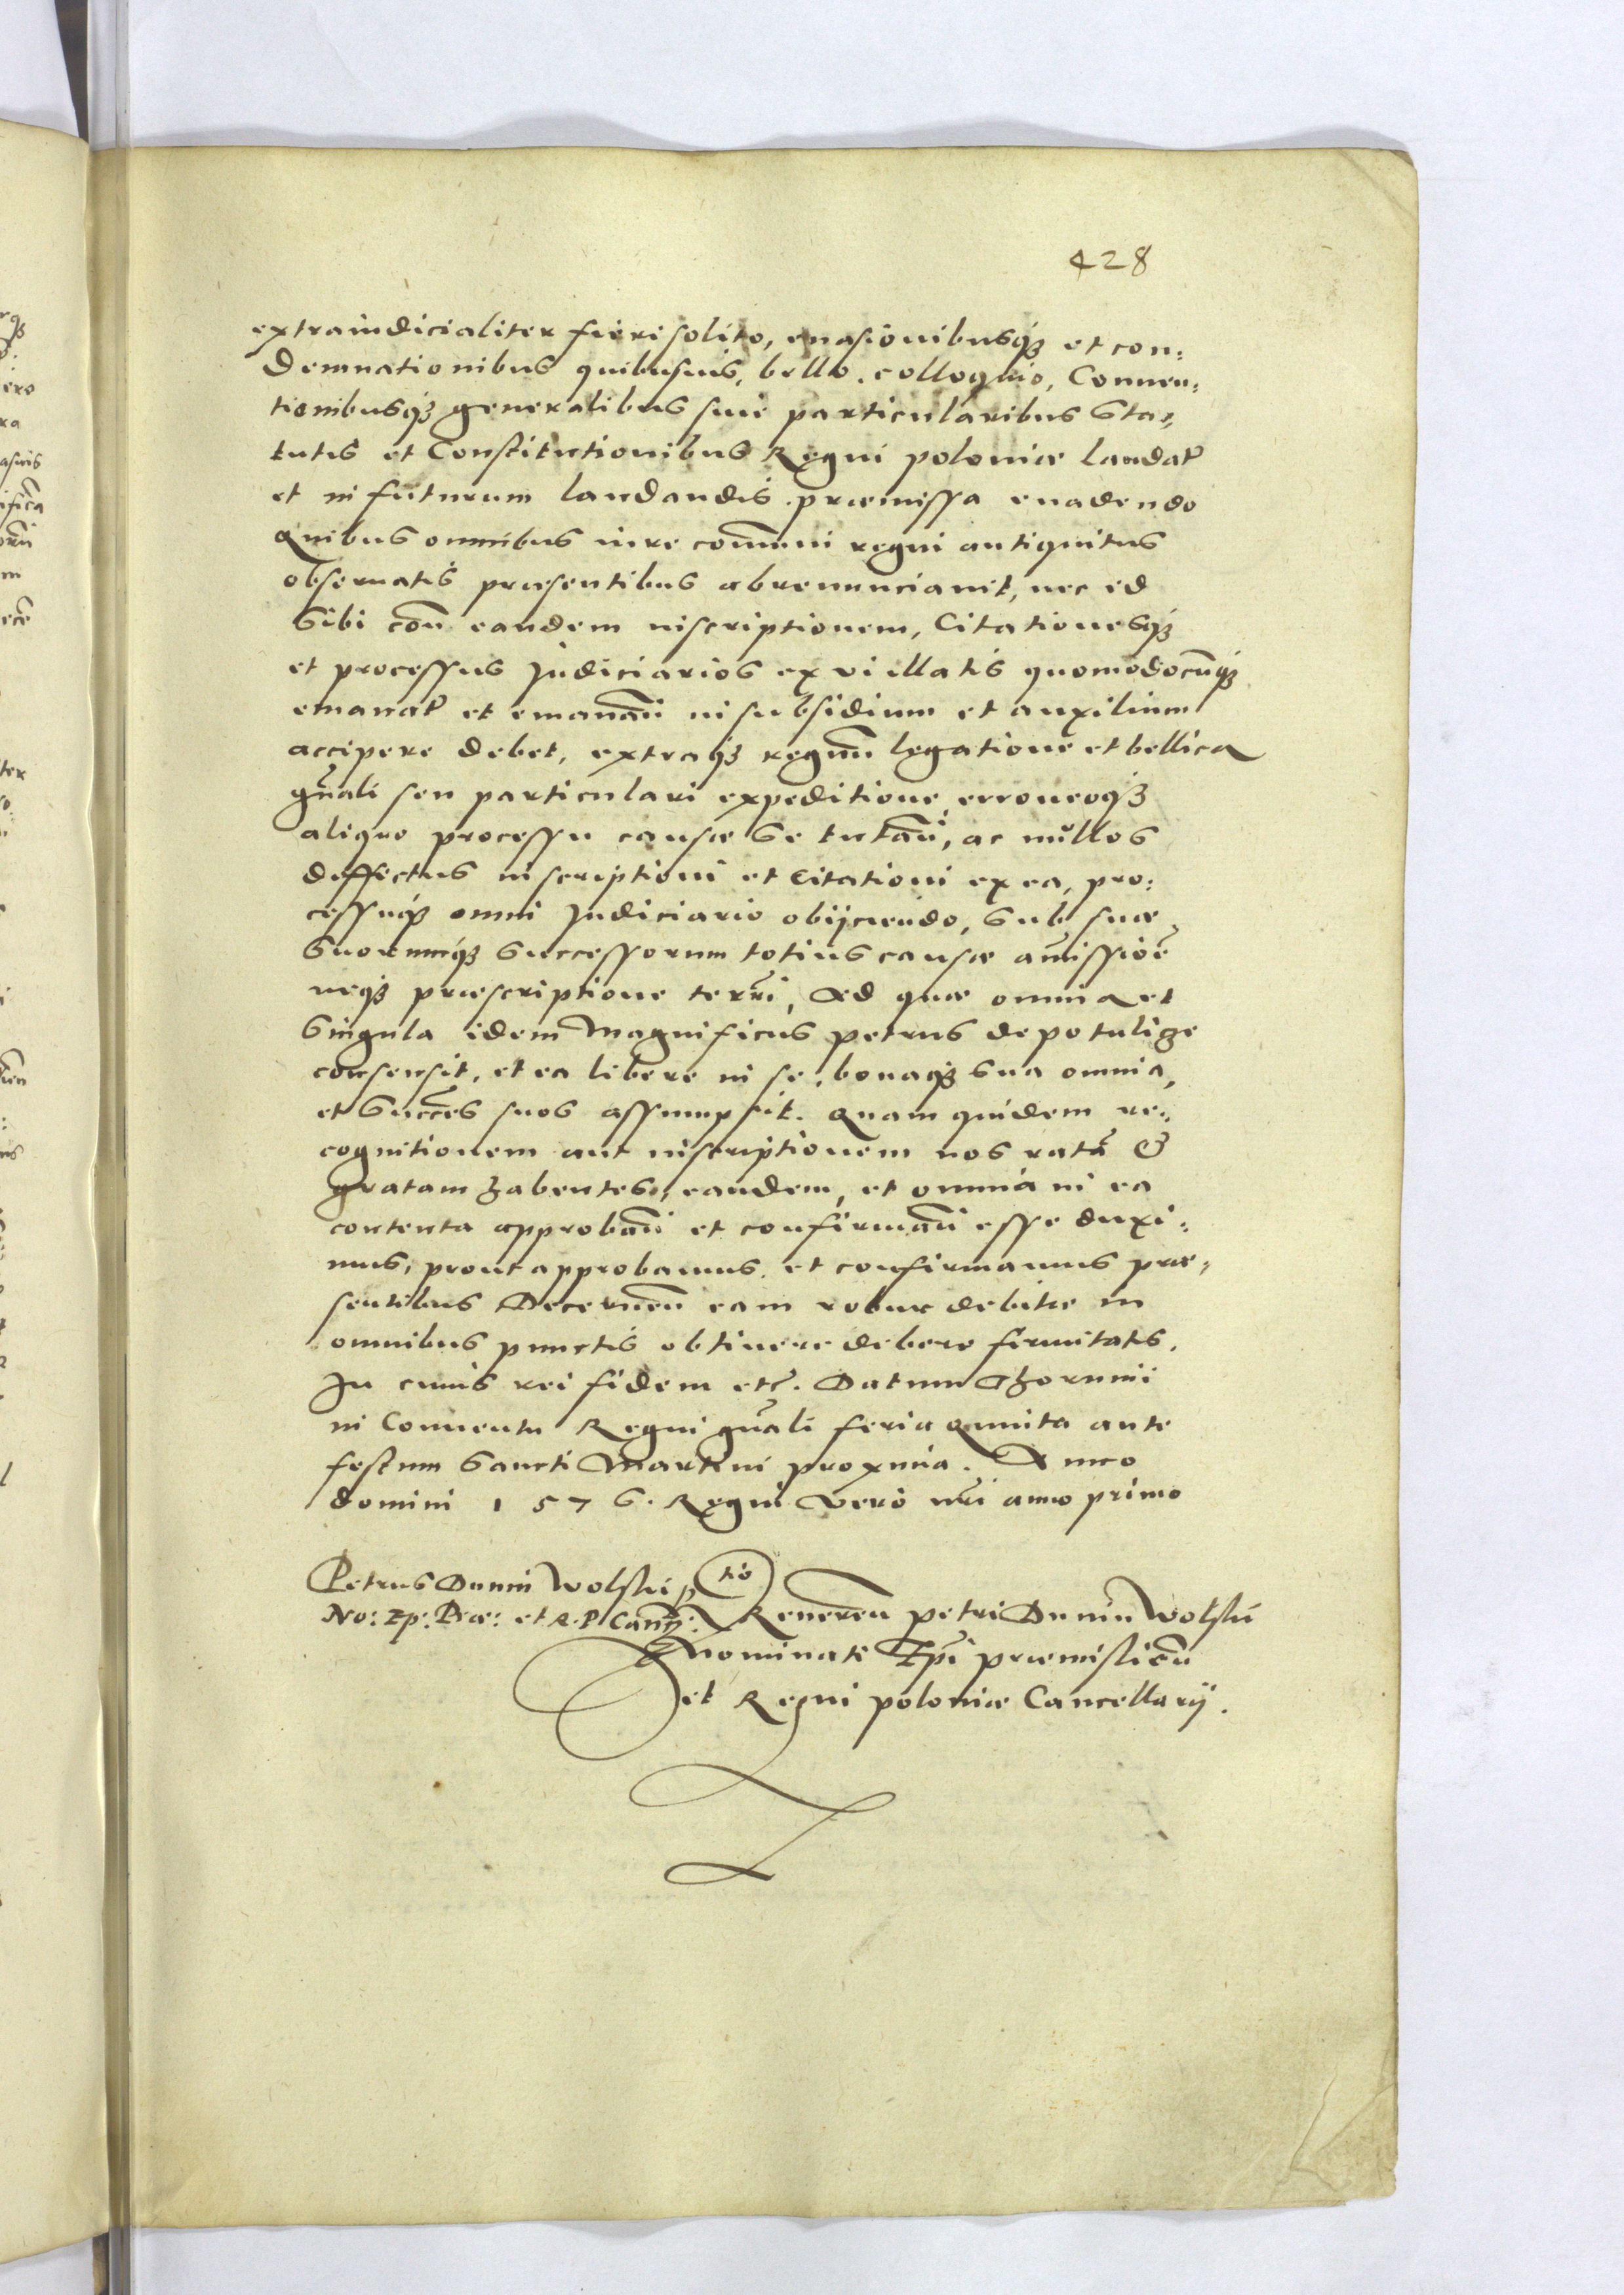 428
extraiudicialiter fieri solito, euasionibusq3 et con:
demnationibus quibusuis, bello, colloquio, Conuen:
tionibusq3 generalibus siue particularibus Sta:
tutis et Constitutionibus Regni poloniæ laudat~
et in futurum laudandis. præmissa euadendo
Quibus omnibus iure com̄uni regni antiquitus
obseruatis præsentibus abrenunciauit, nec ed
Sibi coñ eandem inscriptionem, Citationesq3
et processus Judiciarios ex vi illatis quomodocūq3
emanat~ et emanañ in subsidium et auxilium
accipere debet, extraq3 regnū legatione et bellica
gñali seu particulari expeditione, erroneoq3
aliquo processu causæ se tutañ, ac nŭllos
deffectus inscriptioni et Citationi ex ea, pro:
cessuiq3 omni Judiciario obijciendo, Sub suæ,
Suorumq3 Successorum totius causæ amissioē
neq3 præscriptione terr̃i, Ad quæ omnia et
Singula idem Magnificus petrus de potulicze
consensit, et ea libere in se, bonaq3 Sua omnia,
et Succ̃es suos assumpsit. Quam quidem re:
cognitionem aut inscriptionem nos ratā &
gratam habentes, eandem, et omnia in ea
contenta approbañ et confirmañ esse duxi:
mus, prout approbamus. et confirmamus præ:
sentibus Decerneñ eam robur debitæ in
omnibus punctis obtinere debere firmitatis.
In cuius rei fidem etc. Datum Thorunii
in Conuentu Regni gñali feria Quinta ante
festum Sancti Martini proxima. Anno
domini 1576. Regni vero nr̃i anno primo
Petrus Dunin Wolski
No: Ep: Præ: et R. P. Canc̃:
tio Reuereñ petri Dunin Wolski
Nominati Epĩ præmislieñ
et Regni poloniæ Cancellarij.